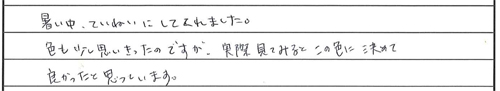 暑い中、ていねいにしてくれました。
色も少し思いきったのですが、実際見てみるとこの色に決めて
良かったと思っています。